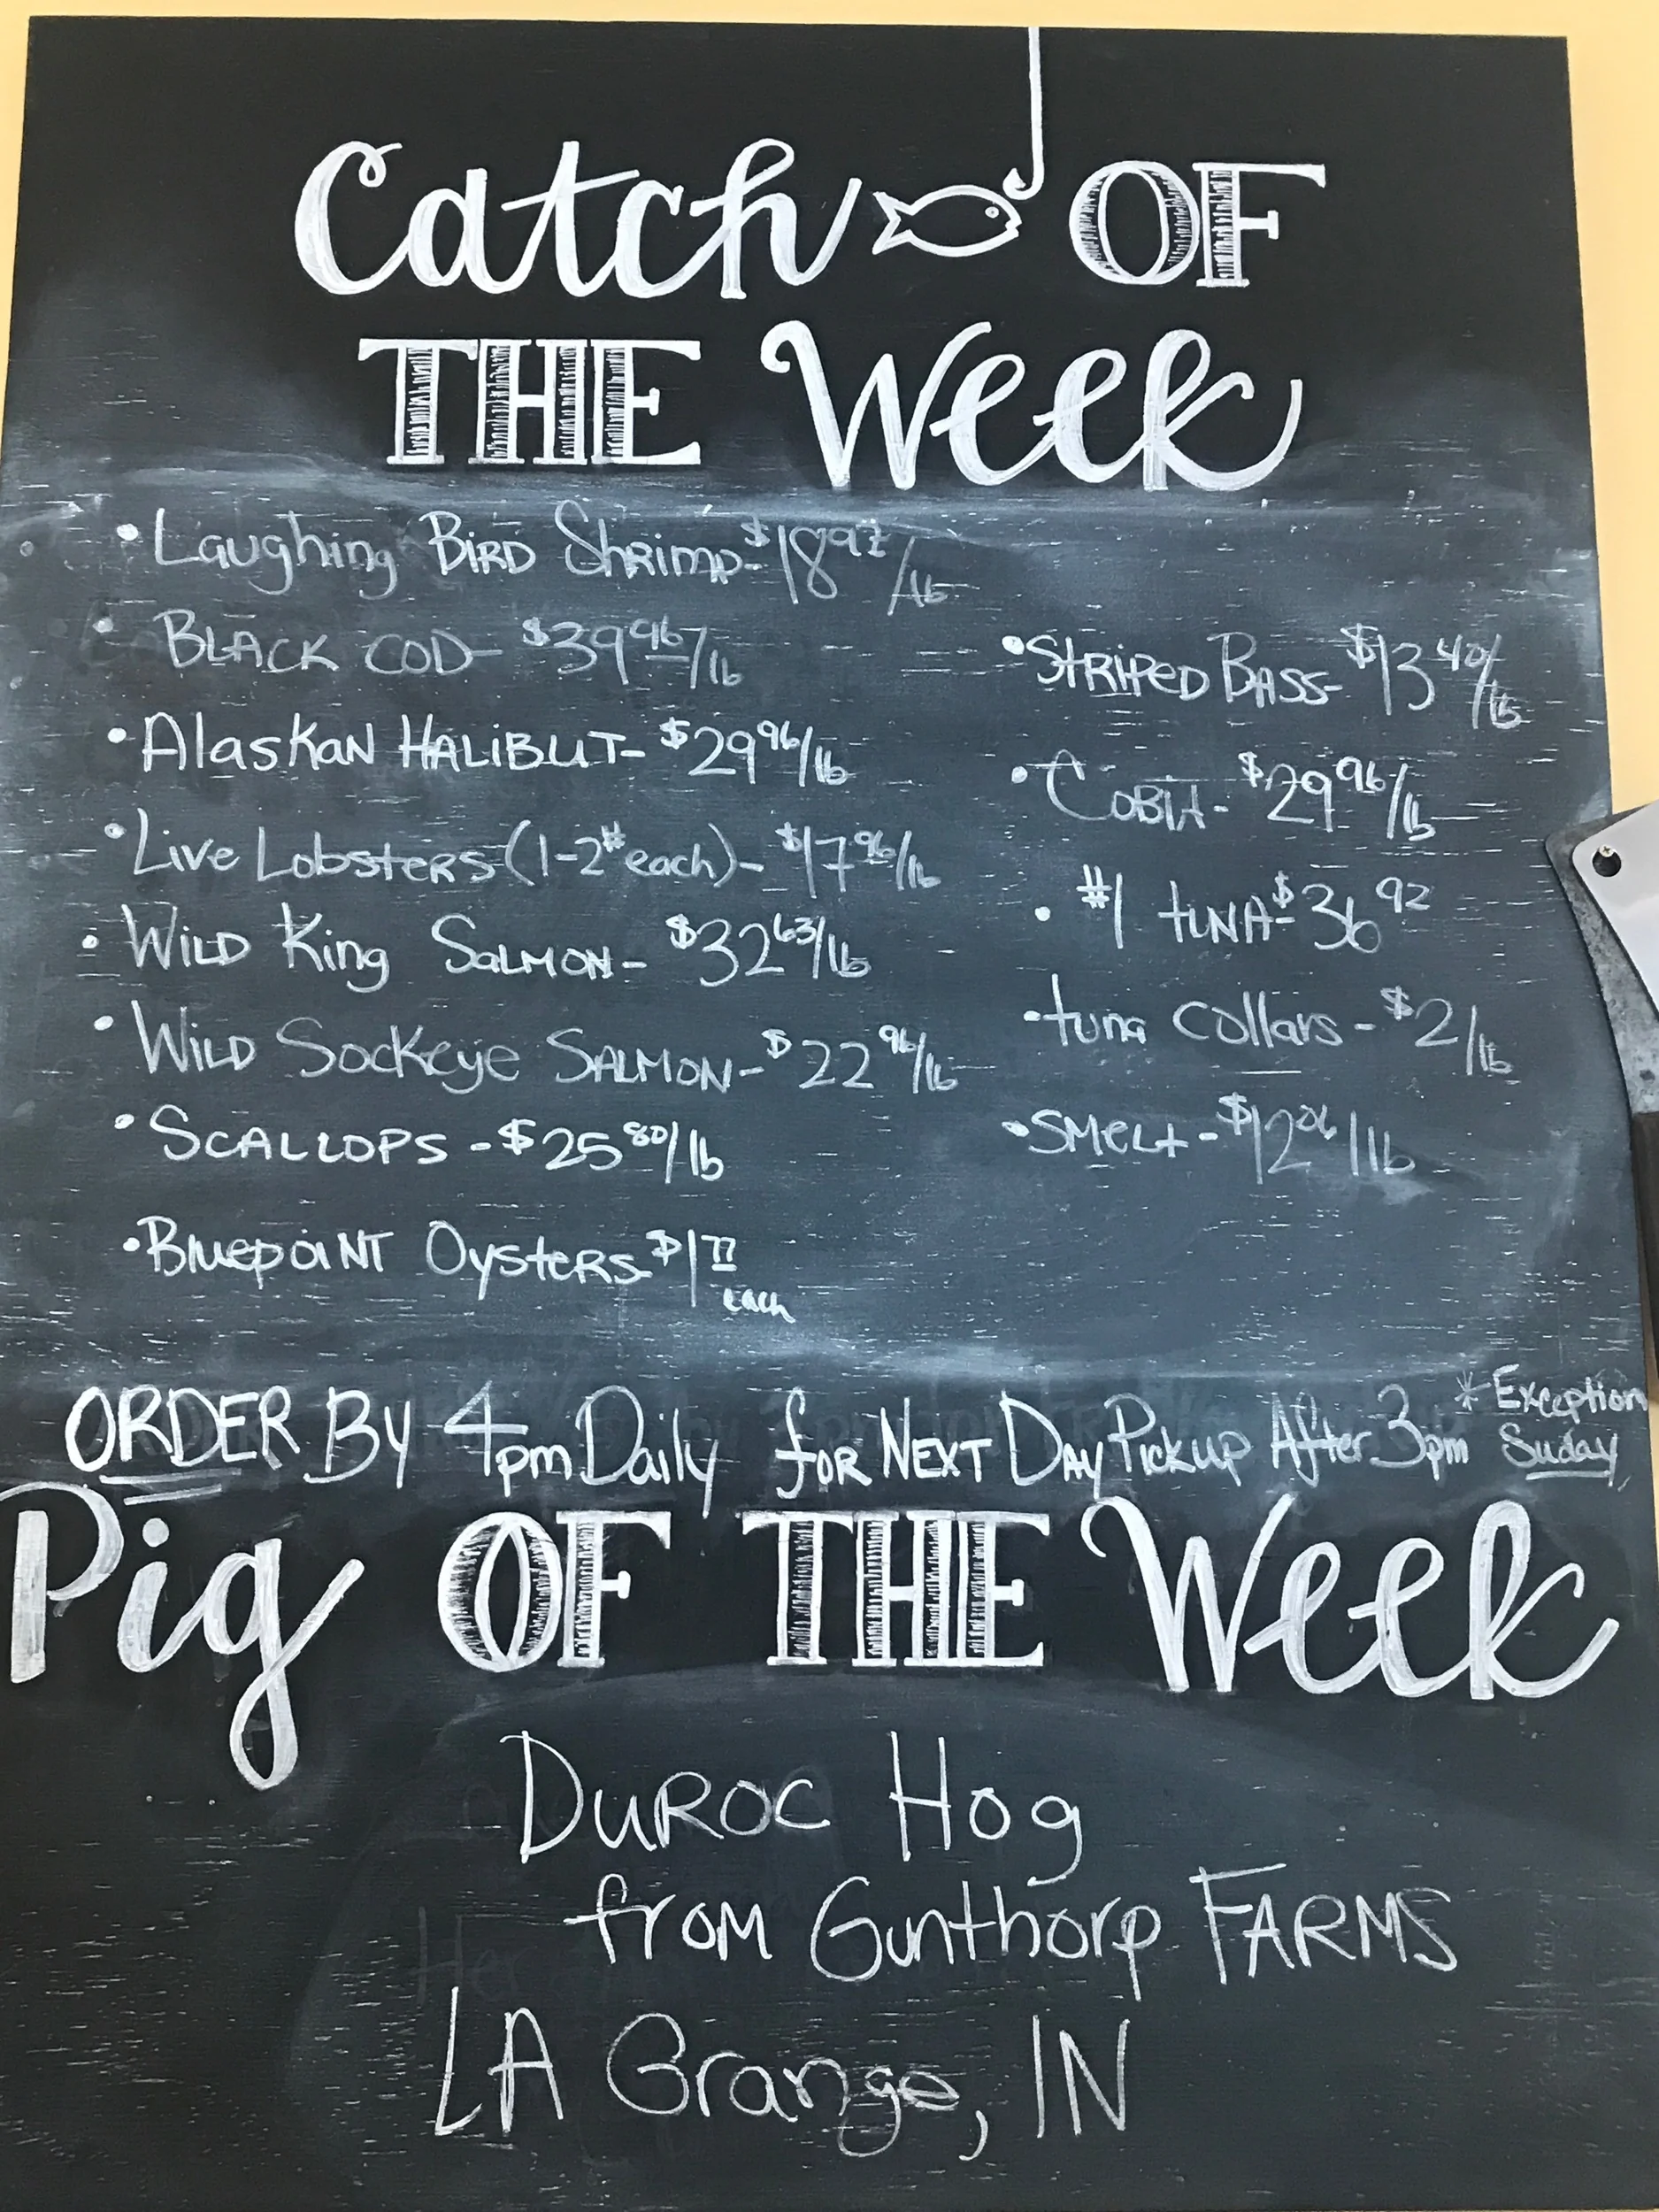 Catch OF
THE Week
• Laughing Bird Shrimp - $18 97/lb
• BLACK COD - $39 96/lb
• Alaskan HALIBUT - $29 96/lb
• Live Lobsters (1-2# each) - $17 96/lb
• WILD King SALMON - $32 63/lb
• WILD Sockeye SALMON - $22 96/lb
• SCALLOPS - $25 80/lb
• Bluepoint Oysters - $1 77 each
• STRIPED BASS - $13 40/lb
• COBIA - $29 96/lb
• #1 tUNA - $36 92
• tuna collars - $2/lb
• SMeLt - $12 06/lb
ORDER By 4pm Daily for NEXT DAY Pickup After 3pm * Exception Suday
Pig OF THE Week
DUROC Hog
from Gunthorp FARMS
LA Grange, IN